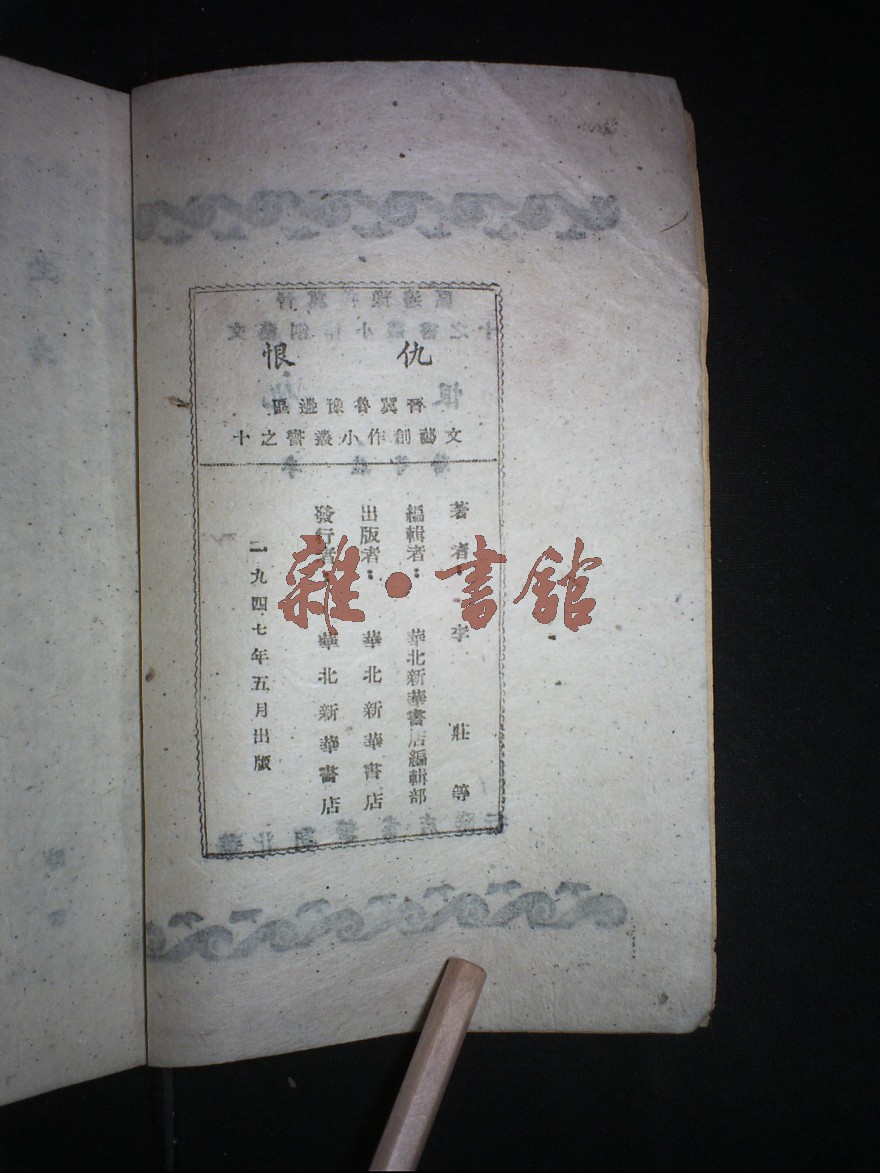 仇恨
晋冀魯豫邊區
文藝創作小叢書之十
著者：李莊等
編輯者：華北新華書店編輯部
出版者：華北新華書店
發行者：華北新華書店
一九四七年五月出版
雜·書館